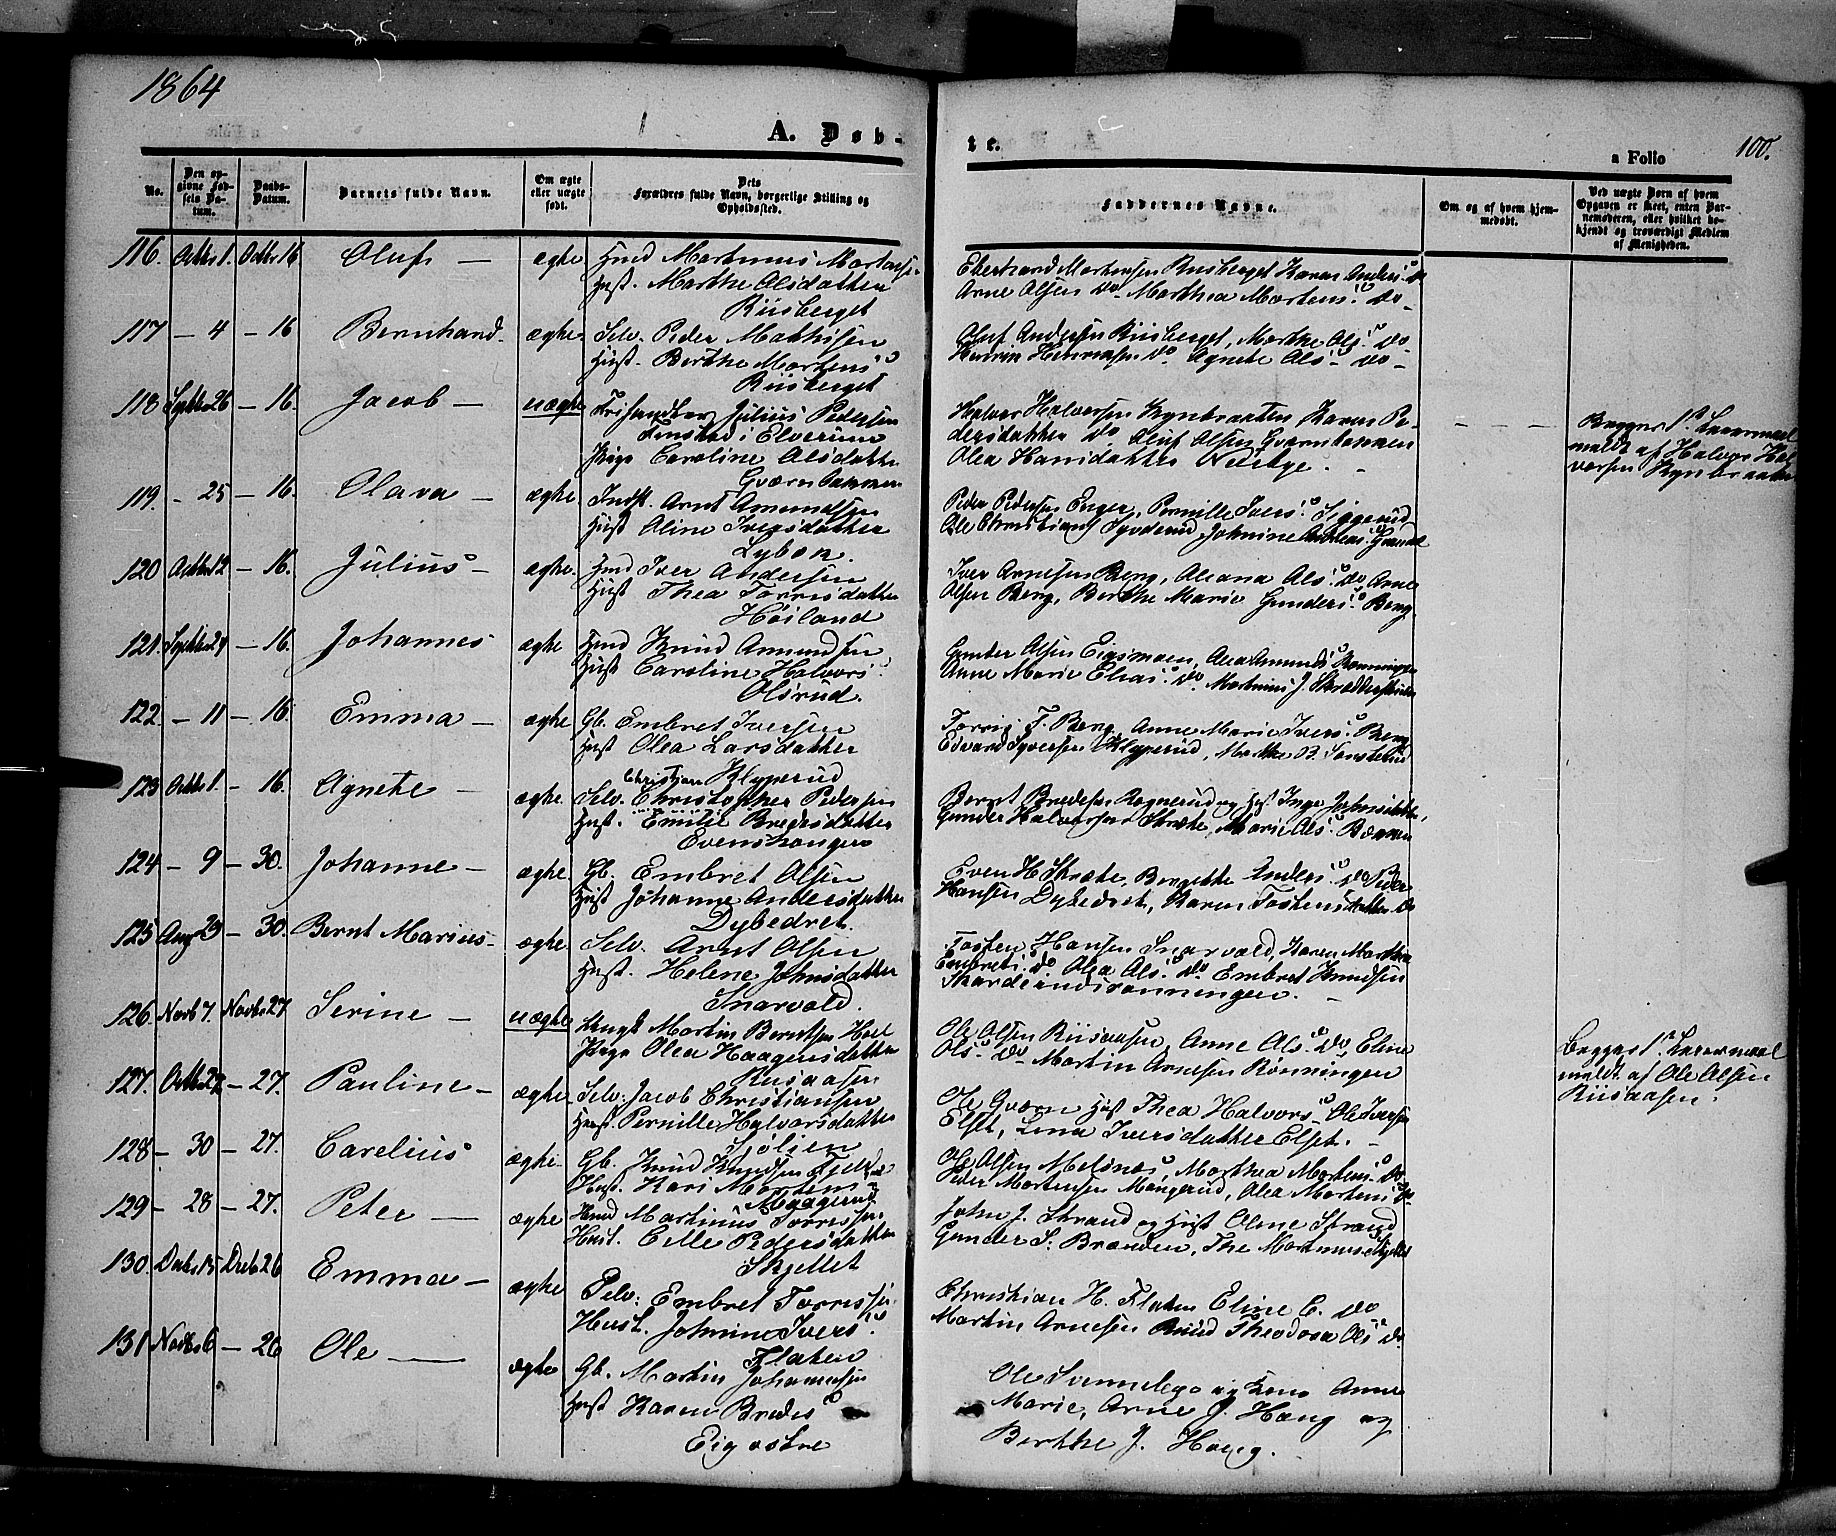 1864
A. Døb-
te.
a Folio
100.
No.
Den op-
givne Fød-
sels Da-
tum.
Daabs-
Datum.
Barnets fulde Navn.
Om ægte
eller uægte
født.
Dets
Forældres fulde Navn, borgerlige Stilling og
Opholdssted.
Faddernes Navne.
Om og af hvem hjem-
medøbt.
Ved uægte Børn af hvem
Opgaven er skeet, enten Bar-
nemoderen, eller hvilket be-
kjendt og troværdigt Medlem
af Menigheden.
116. Octbr 1. Octbr 16 Oluf — ægte Hmd Martinus Mortensen
Hust. Marthe Olsdatter
Riisberget
Martinsen Riisberget Karen Anders: do
Arne Olsen do. Marthea Mortens: do-
117 - 4 - 16 Bernhard. ægte. Selv. Peder Mathisen
Hust. Berthe Mortens:
Riisberget
Oluf Andersen Riisberget, Marthe Ols: do
Henrik Hennrisen do Agnete Ols: do-
118 Septbr 26 - 16. Jacob — uægte Frisandker Julius Pedersen
Finstad i Elverum
Pige Caroline Olsdatter
Halvor Halvorsen Kynbraaten Karen Pe-
dersdatter do Oluf Olsen Gværnbakken
Olea Hansdatter
Begges 1ste Leiermaal
meldt af Halvor Hal
vorsen Kynbraaten
Gværnbakken
119. - 25 - 16. Olava — ægte Indst. Arnt Amundsen
Hust Oline Iversdatter
Lybæk.
Peder Pedersen Enger, Pernille Ivers:
Ole Christians Johnine
120 Octbr 12 - 16. Julius — ægte. Hmd Iver Andersen
Hust Thea Torrisdatter
Høiland
Iver Arnesen Berg, Oleana Ols: do, Arne
Olsen Berg, Berthe Marie Gunders: Berg
121. Septbr 24 - 16. Johannes ægte Hmd Knud Amundsen
Hust Caroline Halvors:
Olsrud.
Gunder Olsen Eigsmoen, Olea Amunds:
Anne Marie Elias: do. Martinus J.
122. - 11 - 16. Emma — ægte Gb. Embret Iversen
Hust Olea Larsdatter
Klyperud
Torris T. Berg, Anne Marie Ivers: Berg
Edvard Syversen Klyperud, Marthe B.
123 Octbr 1. - 16. Agnete - ægte. Selv. Christopher Pedersen
Christian
Hust. Emilie Bredesdatter
Evenshaugen
Bernt Bredesen Rognerud og Hust Inge
Gunder Halvorsen Skræte, Marie Ols: Bakken
124 - 9 - 30. Johanne — ægte. Gb. Embret Olsen
Hust Johanne Andersdatter
Dybedret.
Even H Skræte, Bergitte Anders: do Peder
Hansen Dybedret, Karen Tostensdatter do
125 Aug 23 - 30. Bernt Marius - ægte Selv. Arnt Olsen
Hust. Helene Johnsdatter
Snarvold.
Tosten Hansen Snarvold, Karen Marthea
Embrets: do Olea Ols: do. Embret Knudsen
Skarderudsrønningen.
126. Novb 7. Novbr 27 Serine — uægte Ungk Martin Berntsen Hol
Pige Olea Haagensdatter
Riisaasen
Ole Olsen Riisaasen, Anne Ols: do, Eline
Ols: do Martin Arnesen Rønningen
Begges 1ste Leiermaal
meldt af Ole Olsen
Riisaasen.
127. Octbr 27 - 27. Pauline - ægte Selv: Jacob Christiansen
Hust. Pernille Halvorsdatter
Sjølien
Ole Gværn Hust Thea Halvors: Ole Iversen
Elset, Lina Iversdatter Elset.
128 - 30 - 27. Carelius ægte. Gb. Knud Knudsen
Hust. Kari Mortens:
Ole Olsen Melsnæs, Marthea Mortens: do
Peder Mortensen Maugerud, Olea Mortens: do
129 - 28 - 27. Peter — ægte Hmd Martinus Torrissen
Hust. Eille Pedersdatter
Skjellet
John J. Strand og Hust Oline Strand
Gunder S. Brænden, The Martinus: Skjellet
130. Decbr 15 Decb 26 Emma — ægte Selv: Embret Torrissen
Hust. Johnine Ivers:
Flaten
Christian H. Flaten Eline C. do
Martin Arnesen Theodosa Ols: do
131 Novbr 6 - 26 Ole — ægte Gb. Martin Johannesen
Hust Karen Bredes:
Eig østre
Ole Svennebye og Kone Anne
Marie, Arne J. Haug og
Berthe J. Haug.